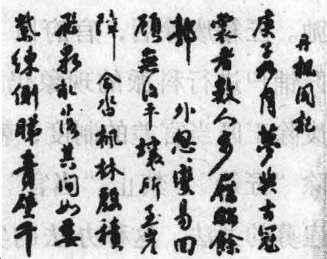 丹楓閣記
庚子九月夢與古冠
裳者數人步屧昭餘
郭外忽變易回
顧無復平壤所至崖
障合沓楓林殷積
飛泉亂落其間如委
縶練側睇青壁千